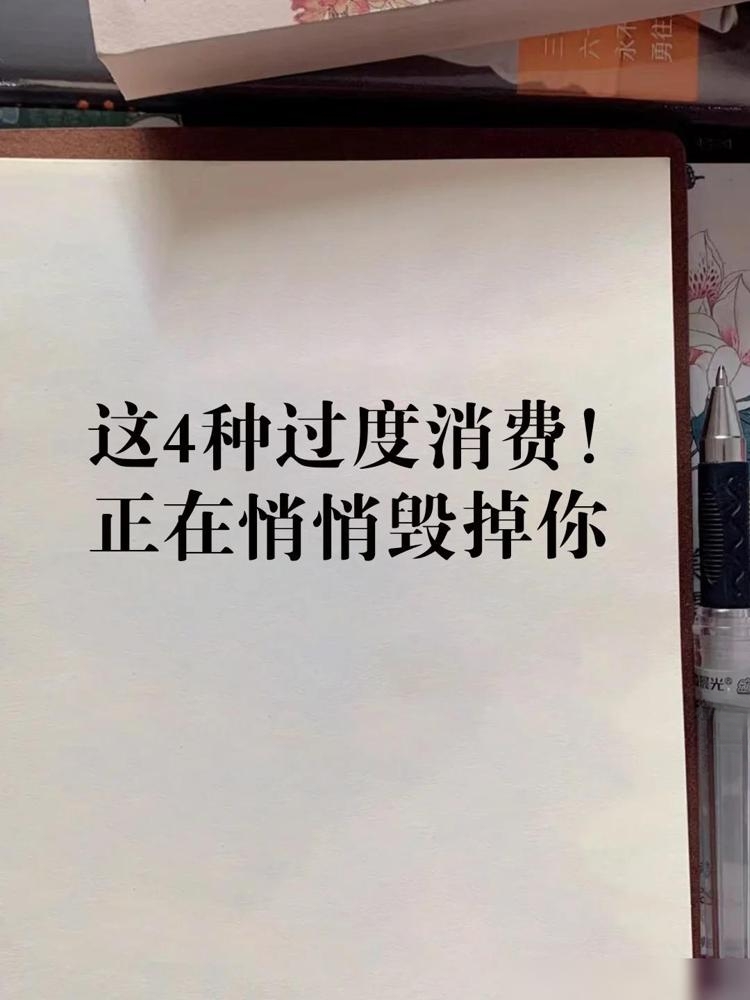 三
六一
永不
勇往
这4种过度消费！
正在悄悄毁掉你
晨光®